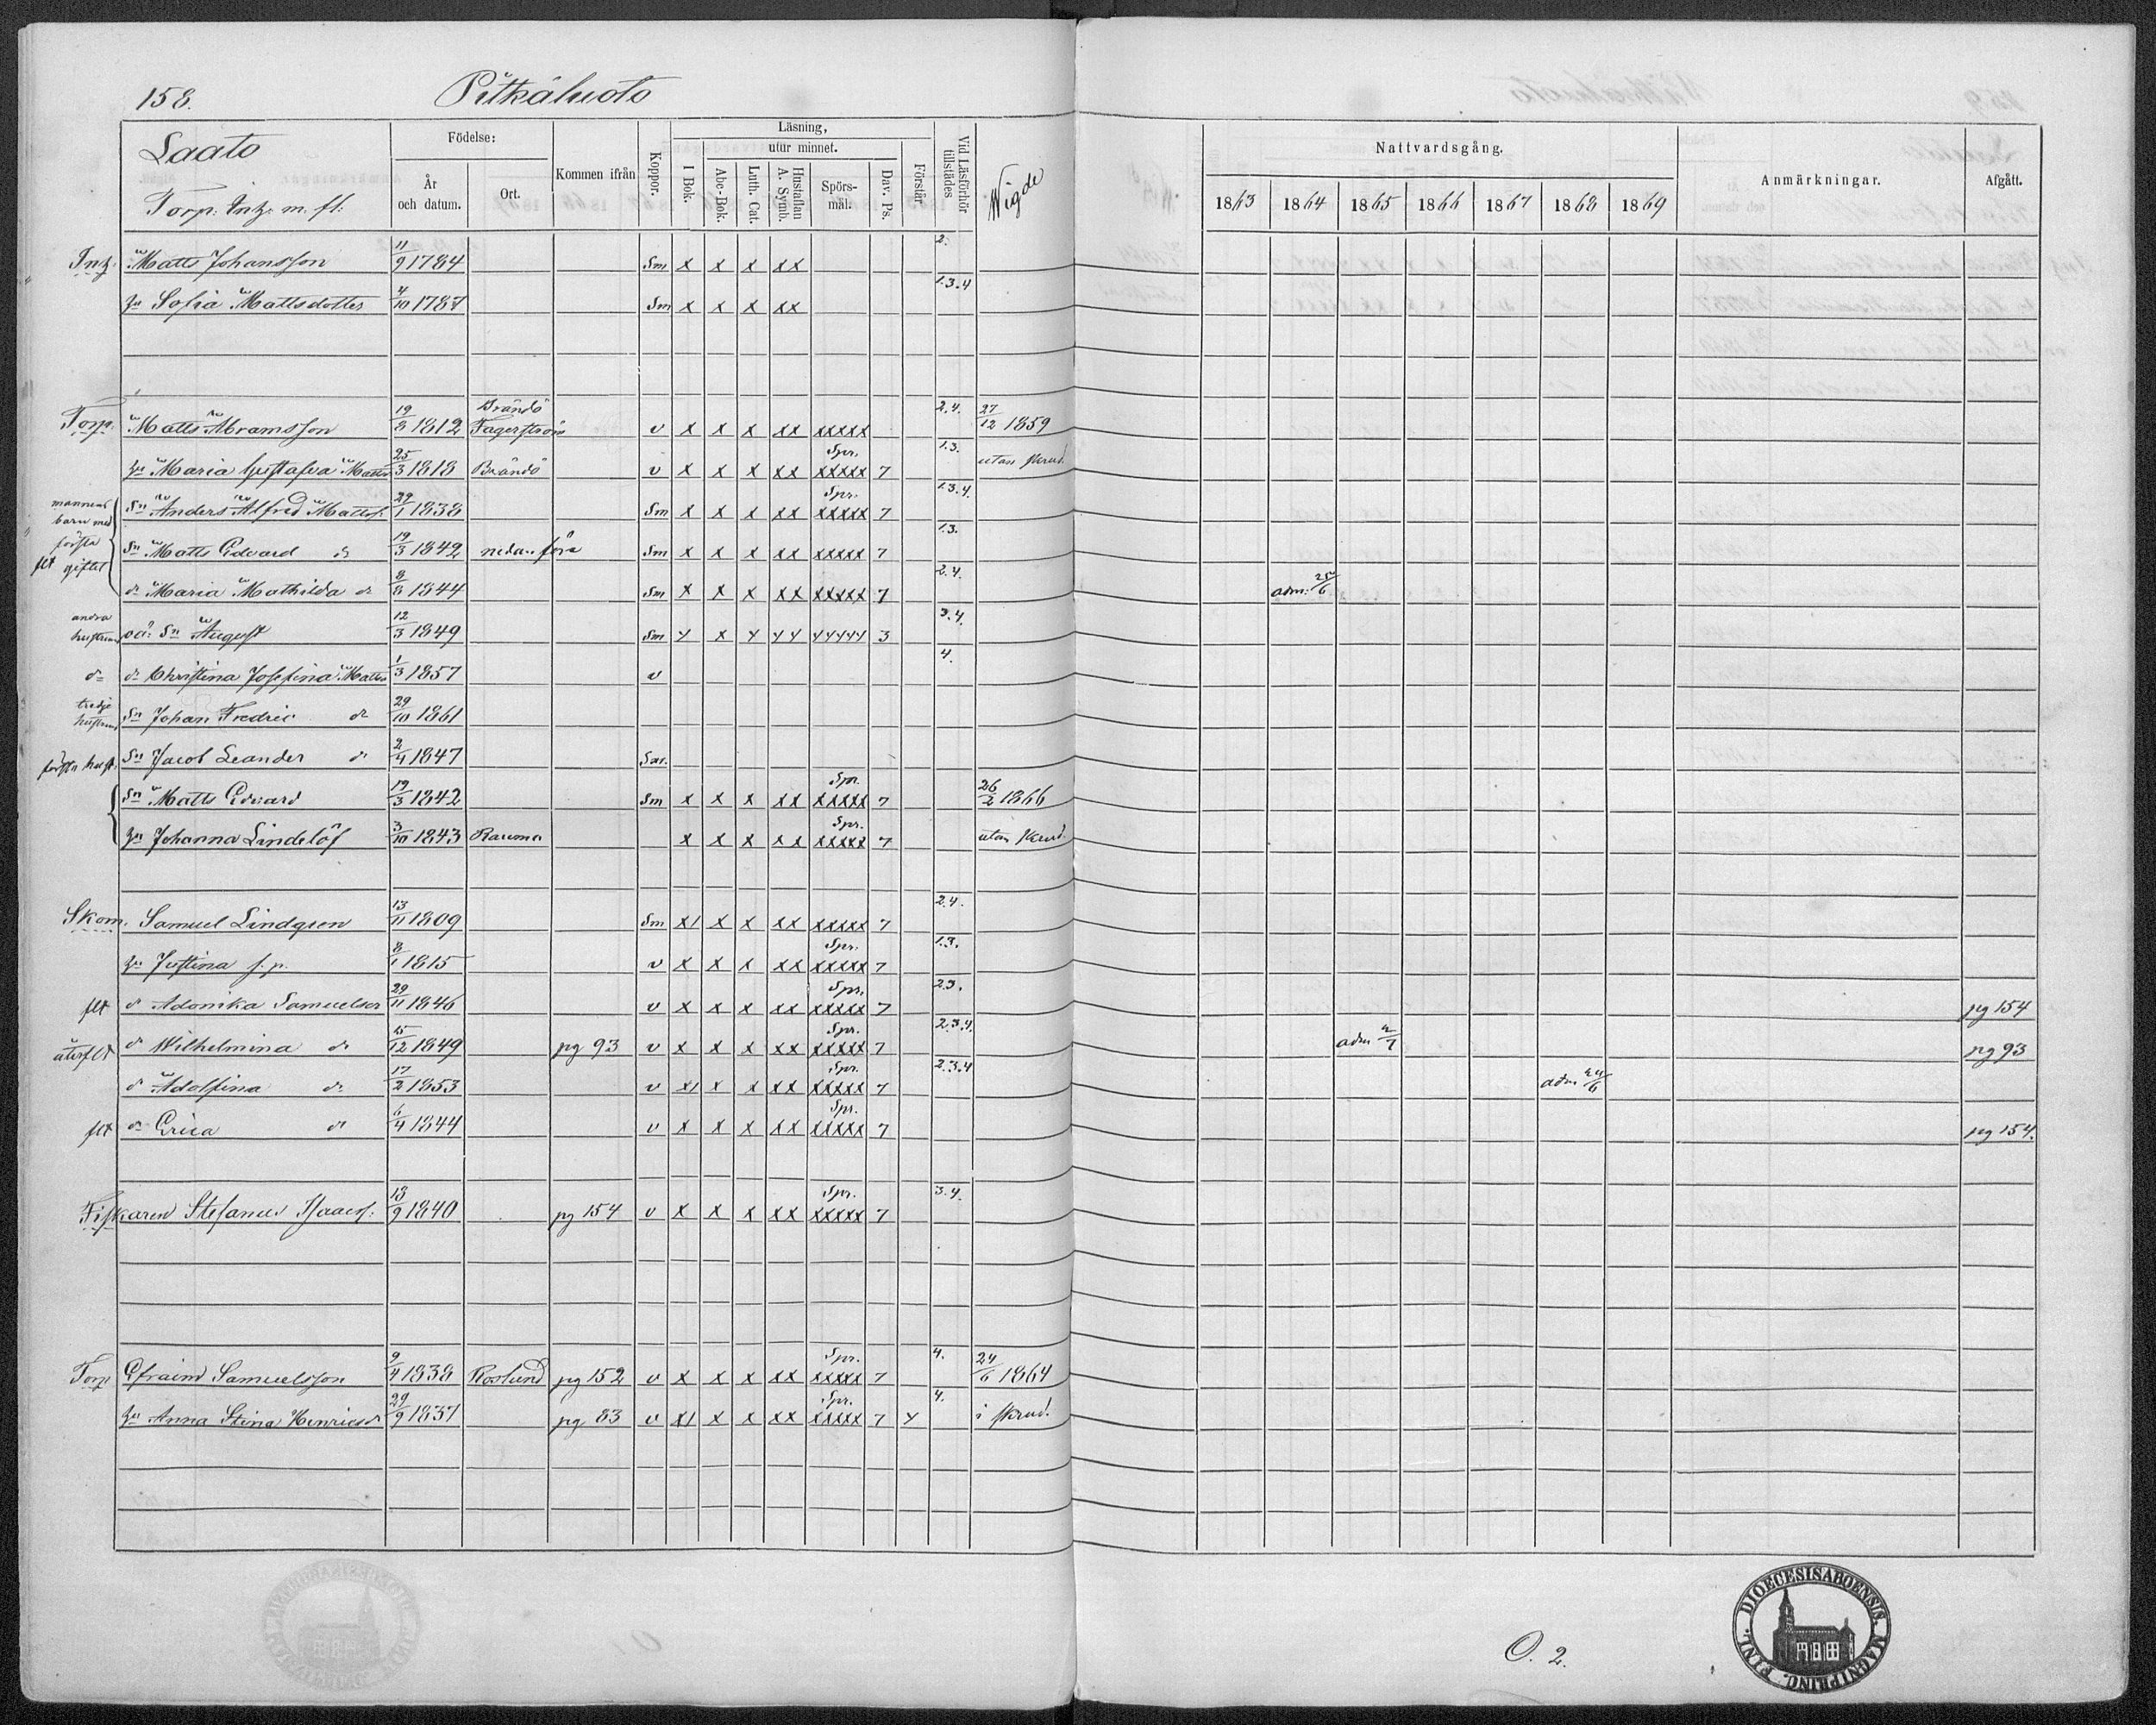 158. Pitkäluoto
Laato
Torp: Intz: m. fl:
Födelse:
År och datum.
Ort.
Kommen ifrån
Koppor.
Läsning,
I Bok.
utur minnet.
Abc-Bok.
Luth. Cat.
Hustaflan A. Symb.
Spörsmål.
Dav. Ps.
Förstår
Vid Läsförhör tillstädes
Wigde
Nattvardsgång.
1863 1864 1865 1866 1867 1868 1869
Anmärkningar.
Afgått.
Intz. Matts Johansson 11/9 1784 Sm x x x xx 2.
hu Sofia Mattsdotter 4/10 1787 Sm x x x xx 1.3.4
Torp. Matts Abramsson 19/8 1812 Brändö Fagerström v x x x xx xxxxx 2.4. 27/12 1859
hu Maria Gustafva Matts 25/3 1818 Brändö v x x x xx Spr. xxxxx 7 1.3. utan skrud.
mannens barn med första giftet
Sn Anders Alfred Mattss. 29/1 1838 Sm x x x xx Spr. xxxxx 7 1.3.4.
flt Sn Matts Edvard d:o 19/3 1842 nedanföre Sm x x x xx xxxxx 7 1.3.
dr Maria Mathilda d:o 8/8 1844 Sm x x x xx xxxxx 7 2.4. adm: 25/6
andra hustruns oä: Sn August 12/3 1849 Sm y x y yy yyyyy 3 3.4.
d:o dr Christina Josefina Matts 1/3 1857 v 4.
tredje hustruns Sn Johan Fredric d:o 29/10 1861
första hust. Sn Jacob Leander d:o 2/4 1847 Sar.
Sn Matts Edvard 19/3 1842 Sm x x x xx Spr. xxxxx 7 26/2 1866
hu Johanna Lindelöf 3/10 1843 Rauma x x x xx Spr. xxxxx 7 utan skrud.
Skom. Samuel Lindgren 13/11 1809 Sm x/ x x xx xxxxx 7 2.4.
hu Justina f. p. 8/1 1815 v x x x xx Spr. xxxxx 7 1.3.
flt d Adamika Samuelsdr 29/11 1846 v x x x xx Spr. xxxxx 7 2.3. pg 154
återflt d Wilhelmina d:o 15/12 1849 pg 93 v x x x xx Spr. xxxxx 7 2.3.4. adm 2/7 pg 93
d Adolfina d:o 17/2 1853 v x/ x x xx Spr. xxxxx 7 2.3.4 adm 24/6
flt dr Erica d:o 6/4 1844 v x x x xx Spr. xxxxx 7 pg 154.
Fiskaren Stefanus Isaacss: 13/9 1840 pg 154 v x x x xx Spr. xxxxx 7 3.4.
Torp Efraim Samuelsson 9/4 1838 Roslund pg 152 v x x x xx Spr. xxxxx 7 4. 24/6 1864
hu Anna Stina Henricsdr 29/9 1837 pg 83 v x/ x x xx Spr. xxxxx 7 y 4. i skrud.
O. 2.
DIOECESIS ABOENSIS. MAGNI PRINC. FINL.